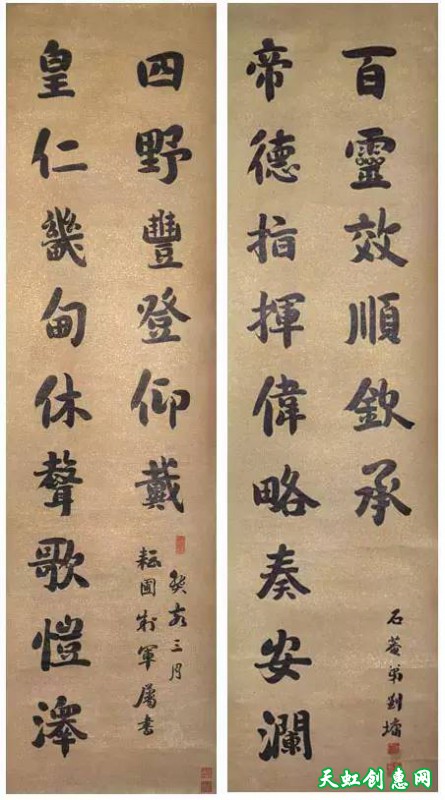 百靈效順欽承
帝德指揮偉略奏安瀾
石菴弟劉墉
四野豐登仰戴
皇仁畿甸休聲歌愷澤
癸亥三月
耘圃制軍屬書
天虹创惠网